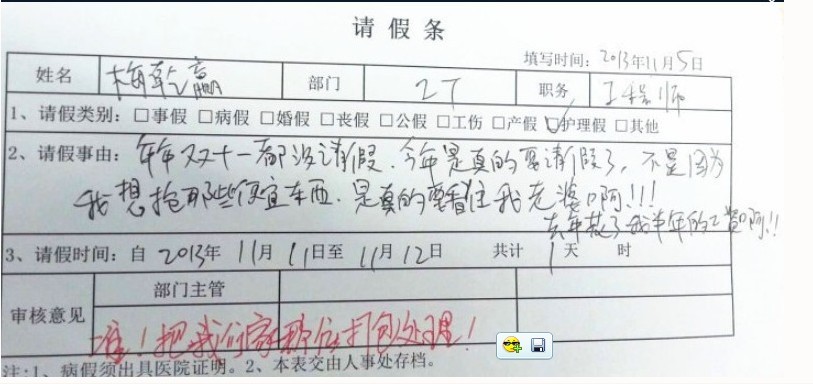 请假条
填写时间：2013年11月5日
姓名 梅乾赢 部门 IT 职务 工程师
1、请假类别：□事假 □病假 □婚假 □丧假 □公假 □工伤 □产假 ☑护理假 □其他
2、请假事由：年年双十一都没请假，今年是真的要请假了，不是因为
我想抢那些便宜东西，是真的要看住我老婆啊!!!
去年败了我半年的工资啊!!
3、请假时间：自 2013年 11月 11日至 11月 12日 共计 1 天 时
部门主管
审核意见
准！把我们家那位打包处理！
注：1、病假须出具医院证明。2、本表交由人事处存档。